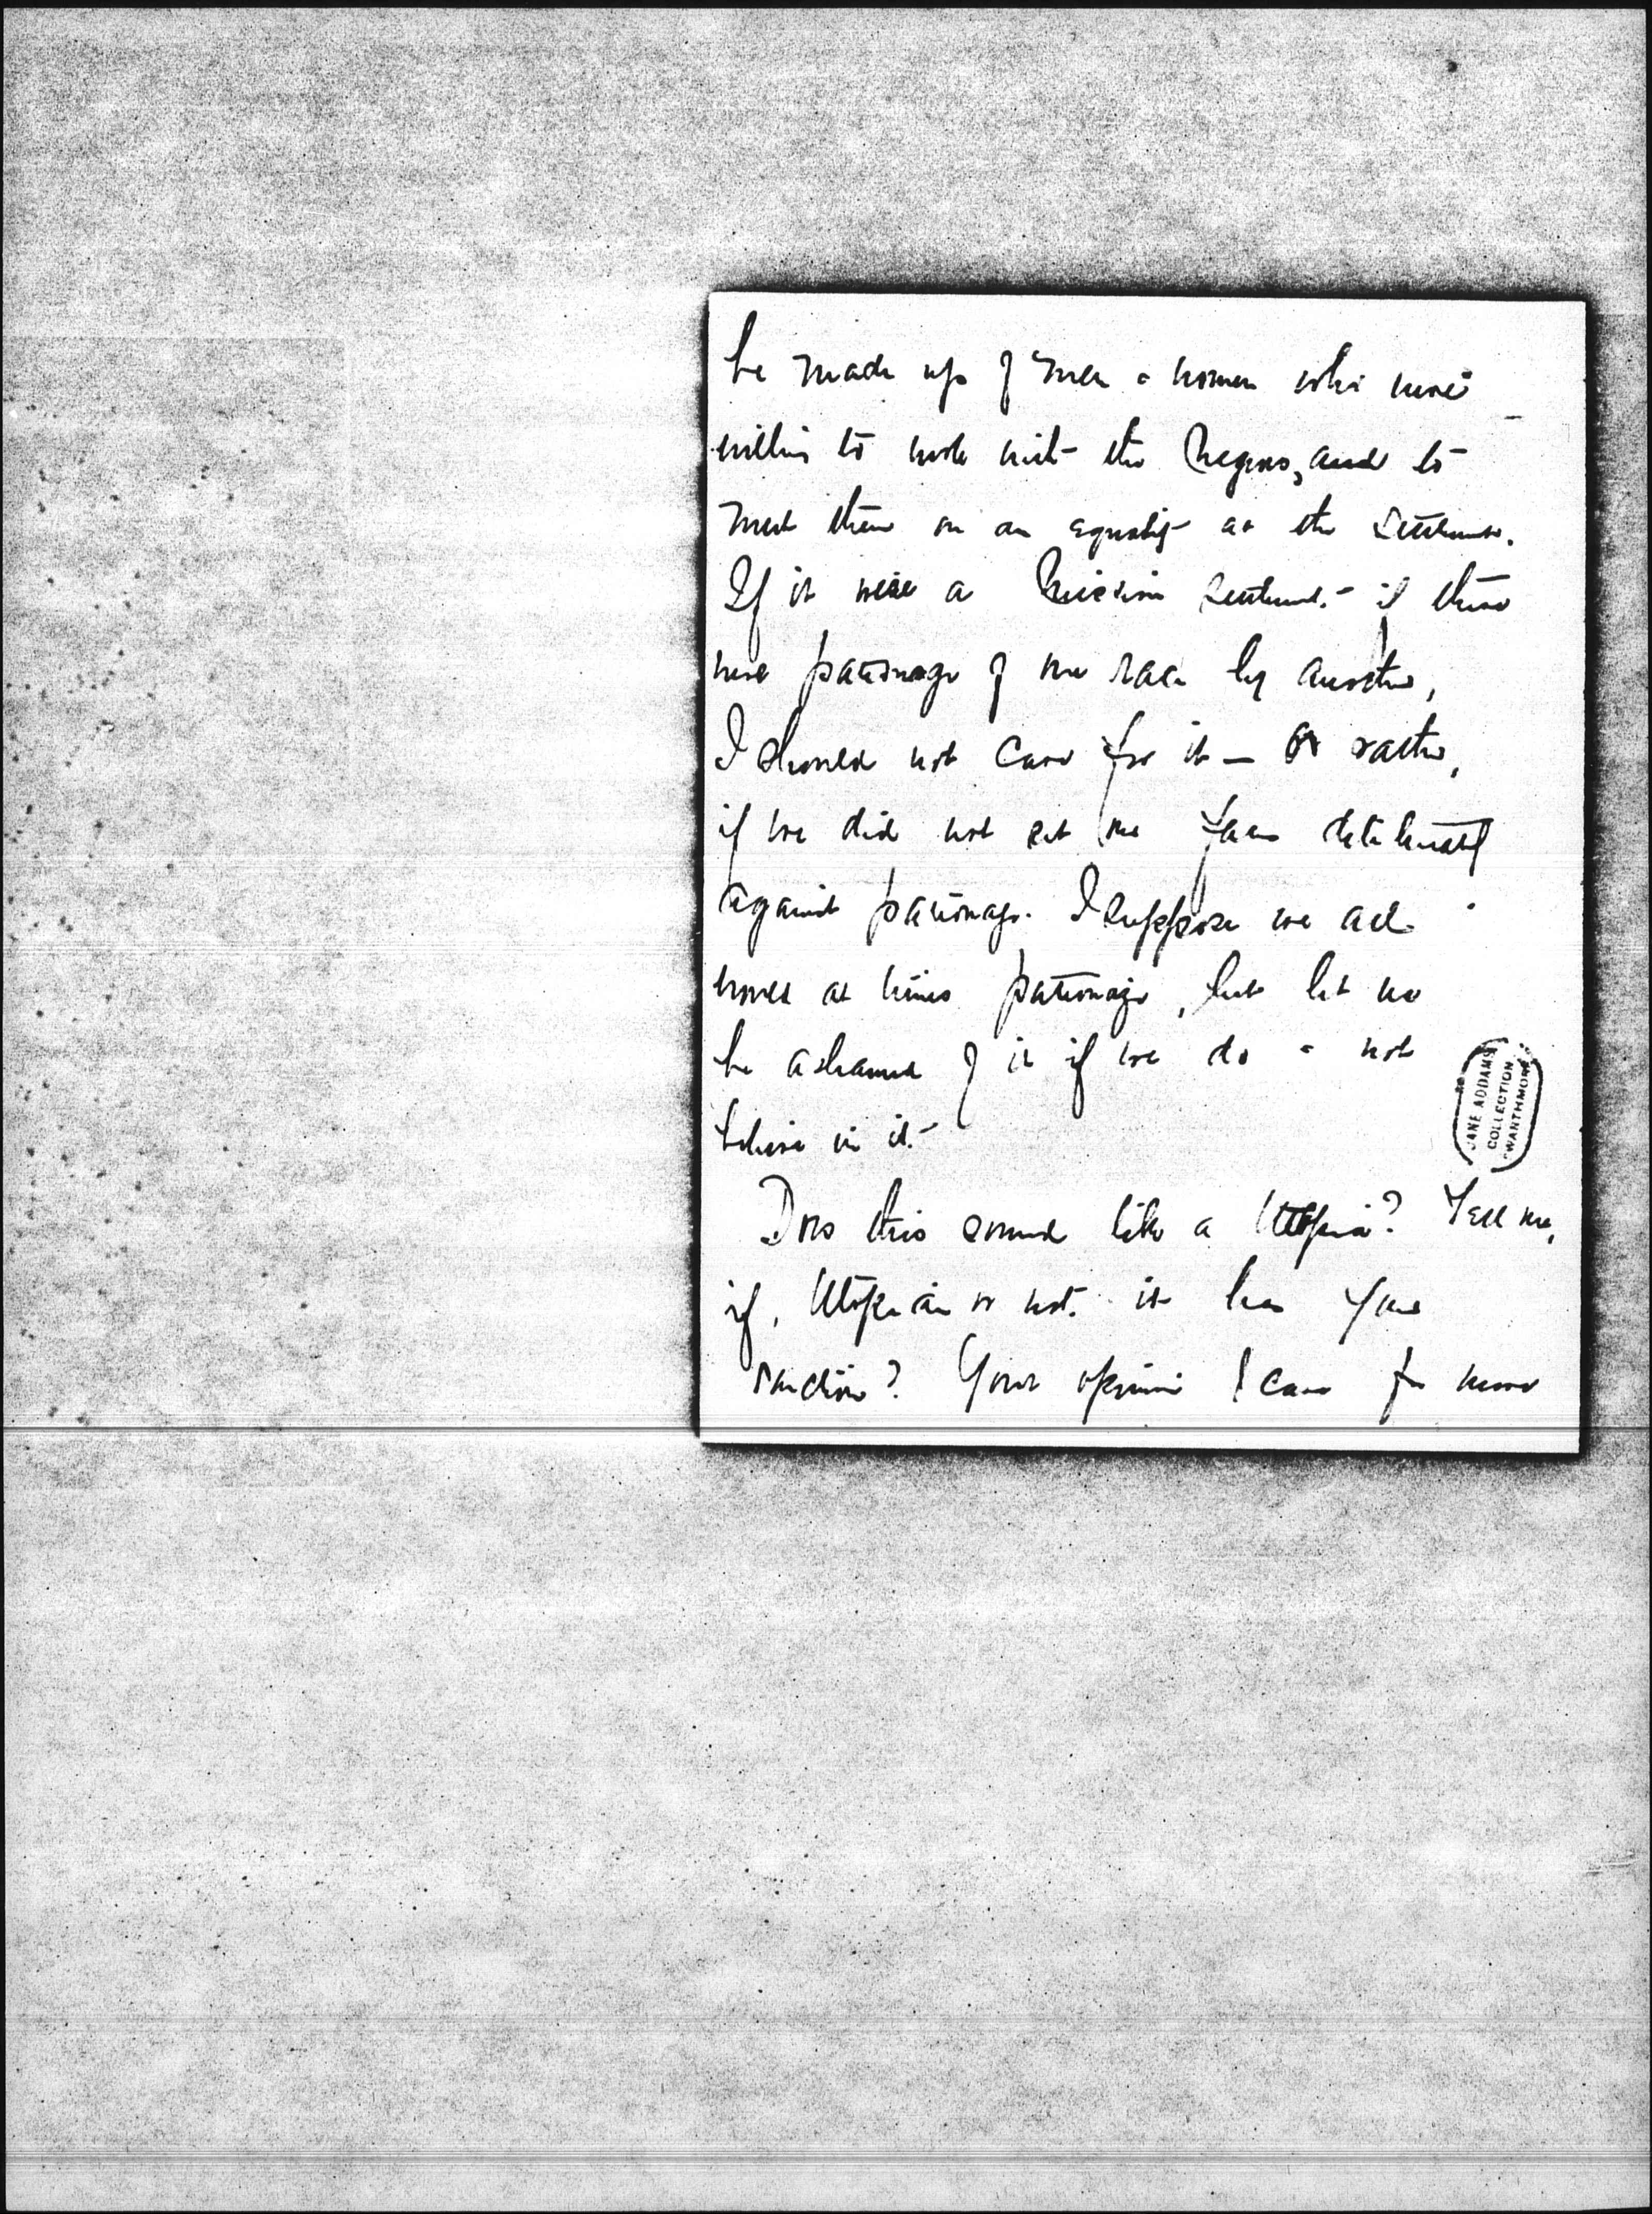 be made up of men & women who were
willing to work with the Negros, and to
meet them on an equality at the Settlement.
If it were a Mission Settlement - if there
were patronage of one race by another,
I should not care for it — Or rather,
if we did not set our faces deliberately
against patronage. I suppose we all
would at times patronage, but let us
be ashamed of it if we do & not
believe in it.-
Does this sound like a Utopia? Tell me,
if, Utopian or not. it has your
sanction? Your opinion I care for more
JANE ADDAMS
COLLECTION
SWARTHMORE